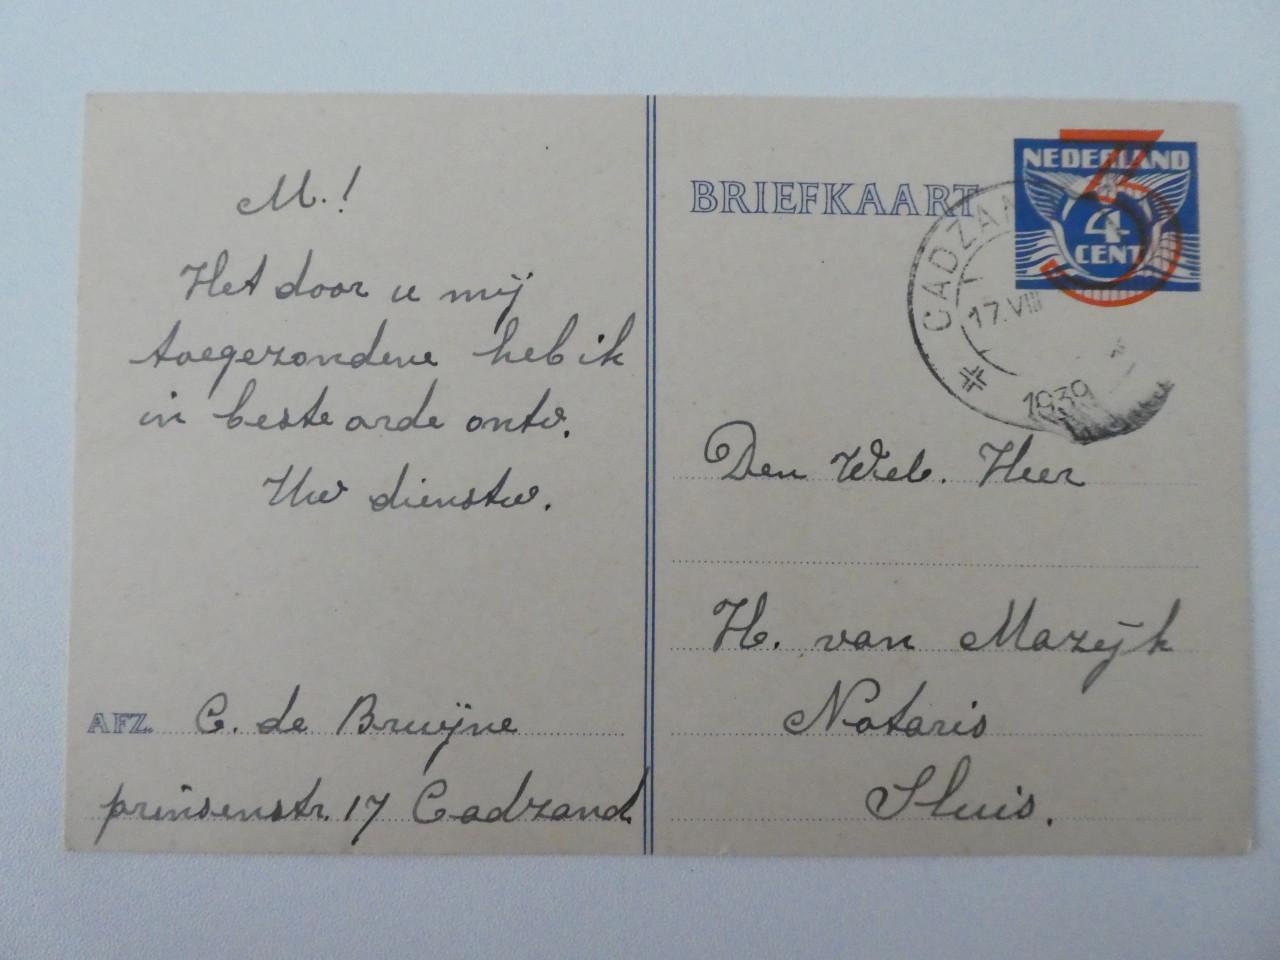 M.!
Het door u mij
toegezondene heb ik
in beste orde ontv.
Uw dienstw.
AFZ. C. de Bruijne
prinsenstr. 17 Cadzand
BRIEFKAART
NEDERLAND
3
4
CENT
CADZAN
17.VIII
1939
Den Wel. Heer
H. van Mazijk
Notaris
Sluis.